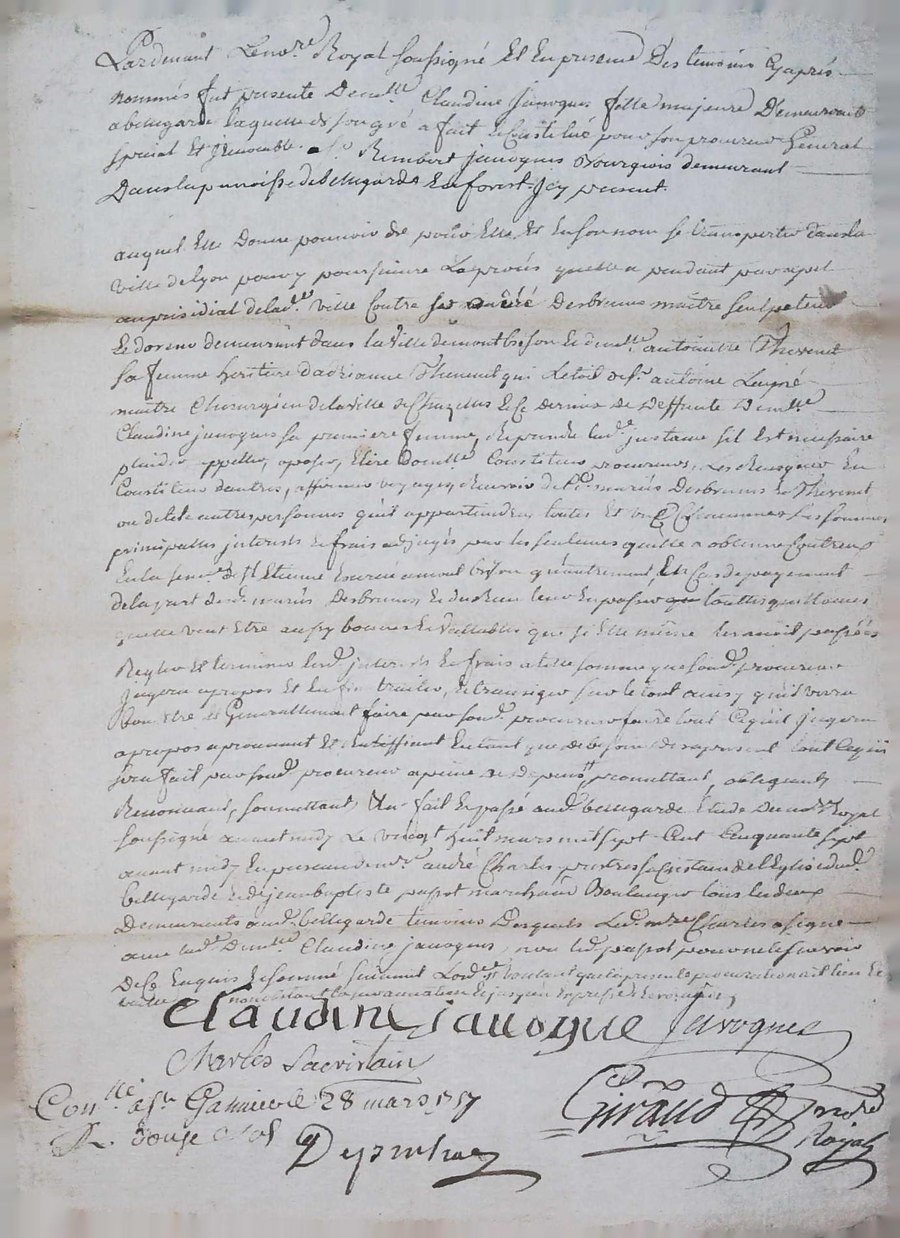 Pardevant Lenore Royal soussigné Et En presence Des temoins Cyaprés
nommés fut presente Demlle Claudine Javogues fille majeure Demeurante
a bellegarde Laquelle de son gré a fait et Constitué pour son procureur General
special Et Irrevocable. sr Rimbert javogues Bourgeois demeurant
Dans la parroisse de bellegarde En forest. Icy present.
auquel Elle Donne pouvoir de pour Elle Et En son nom se transporter dans la
ville de Lyon pour y poursuivre Le procés quelle a pendant par apel
au presidial de lade. ville Contre sr andré Desbruns maitre sculpeteur
Et doreur demeurant dans la ville de montbrison Et demlle antoinette Thevenet
sa femme heritiere d'adrianne Thevenet qui Letoit de sr antoine
maitre Chirurgien de la ville de Chazelles Et Ce Dernier de Deffunte Demlle
Claudine javogues sa premiere femme, Reprendre lade justance sil Est necessaire
plaider, appeller, oposer, Elire Domlle Constituer procureurs, Les Revoquer En
Constituer d'autres, affirmer voyages, Recevoir de mariés Desbruns Et Thevenet
ou de tele autres personnes quil appartiendra, toutes Et Les sommes
principalles interests Et frais adjugés par les sentences quelle a obtenue Contreux
En la de st Etienne Et quautrement, Et En Cas de payement
de la part desds. mariés Desbruns, Et En passer quittances
quelle veut Etre aussy bonnes Et vallables que si Elle même les avoit passées
Regler Et terminer lesds interests Et frais a telle somme que sond. procureur
jugera a propos Et En fin traiter, Et transiger sur le tout ainsy quil verra
bon Etre Et Generallement faire par sond. procureur tout Ce quil jugera
a propos aprouvant Et Ratiffiant En tant que de besoin des a present tout Ce qui
sera fait par sond. procureur a peine de depens, promettant obligeant
Renoncant, soumettant fait Et passé aud. bellegarde Etude Du nore Royal
soussigné avant midy Le vingt huit mars mil sept Cent Cinquante sept
avant midy En presence de mre andré Charles pretre sacristain de l'Eglise dud.
bellegarde Et de jean baptiste marchand Boulanger tous les deux
Demeurants aud. bellegarde temoins Desquels Led. mre Charles a signé
avec lade Demlle Claudine javogues, non led. pour ne le sçavoir
De Ce Enquis Et sommé suivant Lord. voulant que la presente procuration ait lieu Et
nonobstant la surannation Et jusqu'a Expresse Revocation,
Claudine javogue Javogues
Charles Sacristain
Conllé a st Galmier le 28 mars 1757
R. Douze sols Giraud nore
Royal